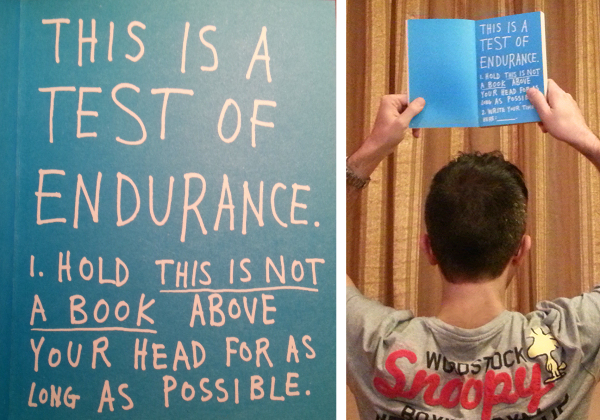 THIS IS A
TEST OF
ENDURANCE.
1. HOLD THIS IS NOT
A BOOK ABOVE
YOUR HEAD FOR AS
LONG AS POSSIBLE.
THIS IS A
TEST OF
ENDURANCE.
1. HOLD THIS IS NOT
A BOOK ABOVE
YOUR HEAD FOR AS
LONG AS
2. WRITE YOUR
WOODSTOCK
Snoopy